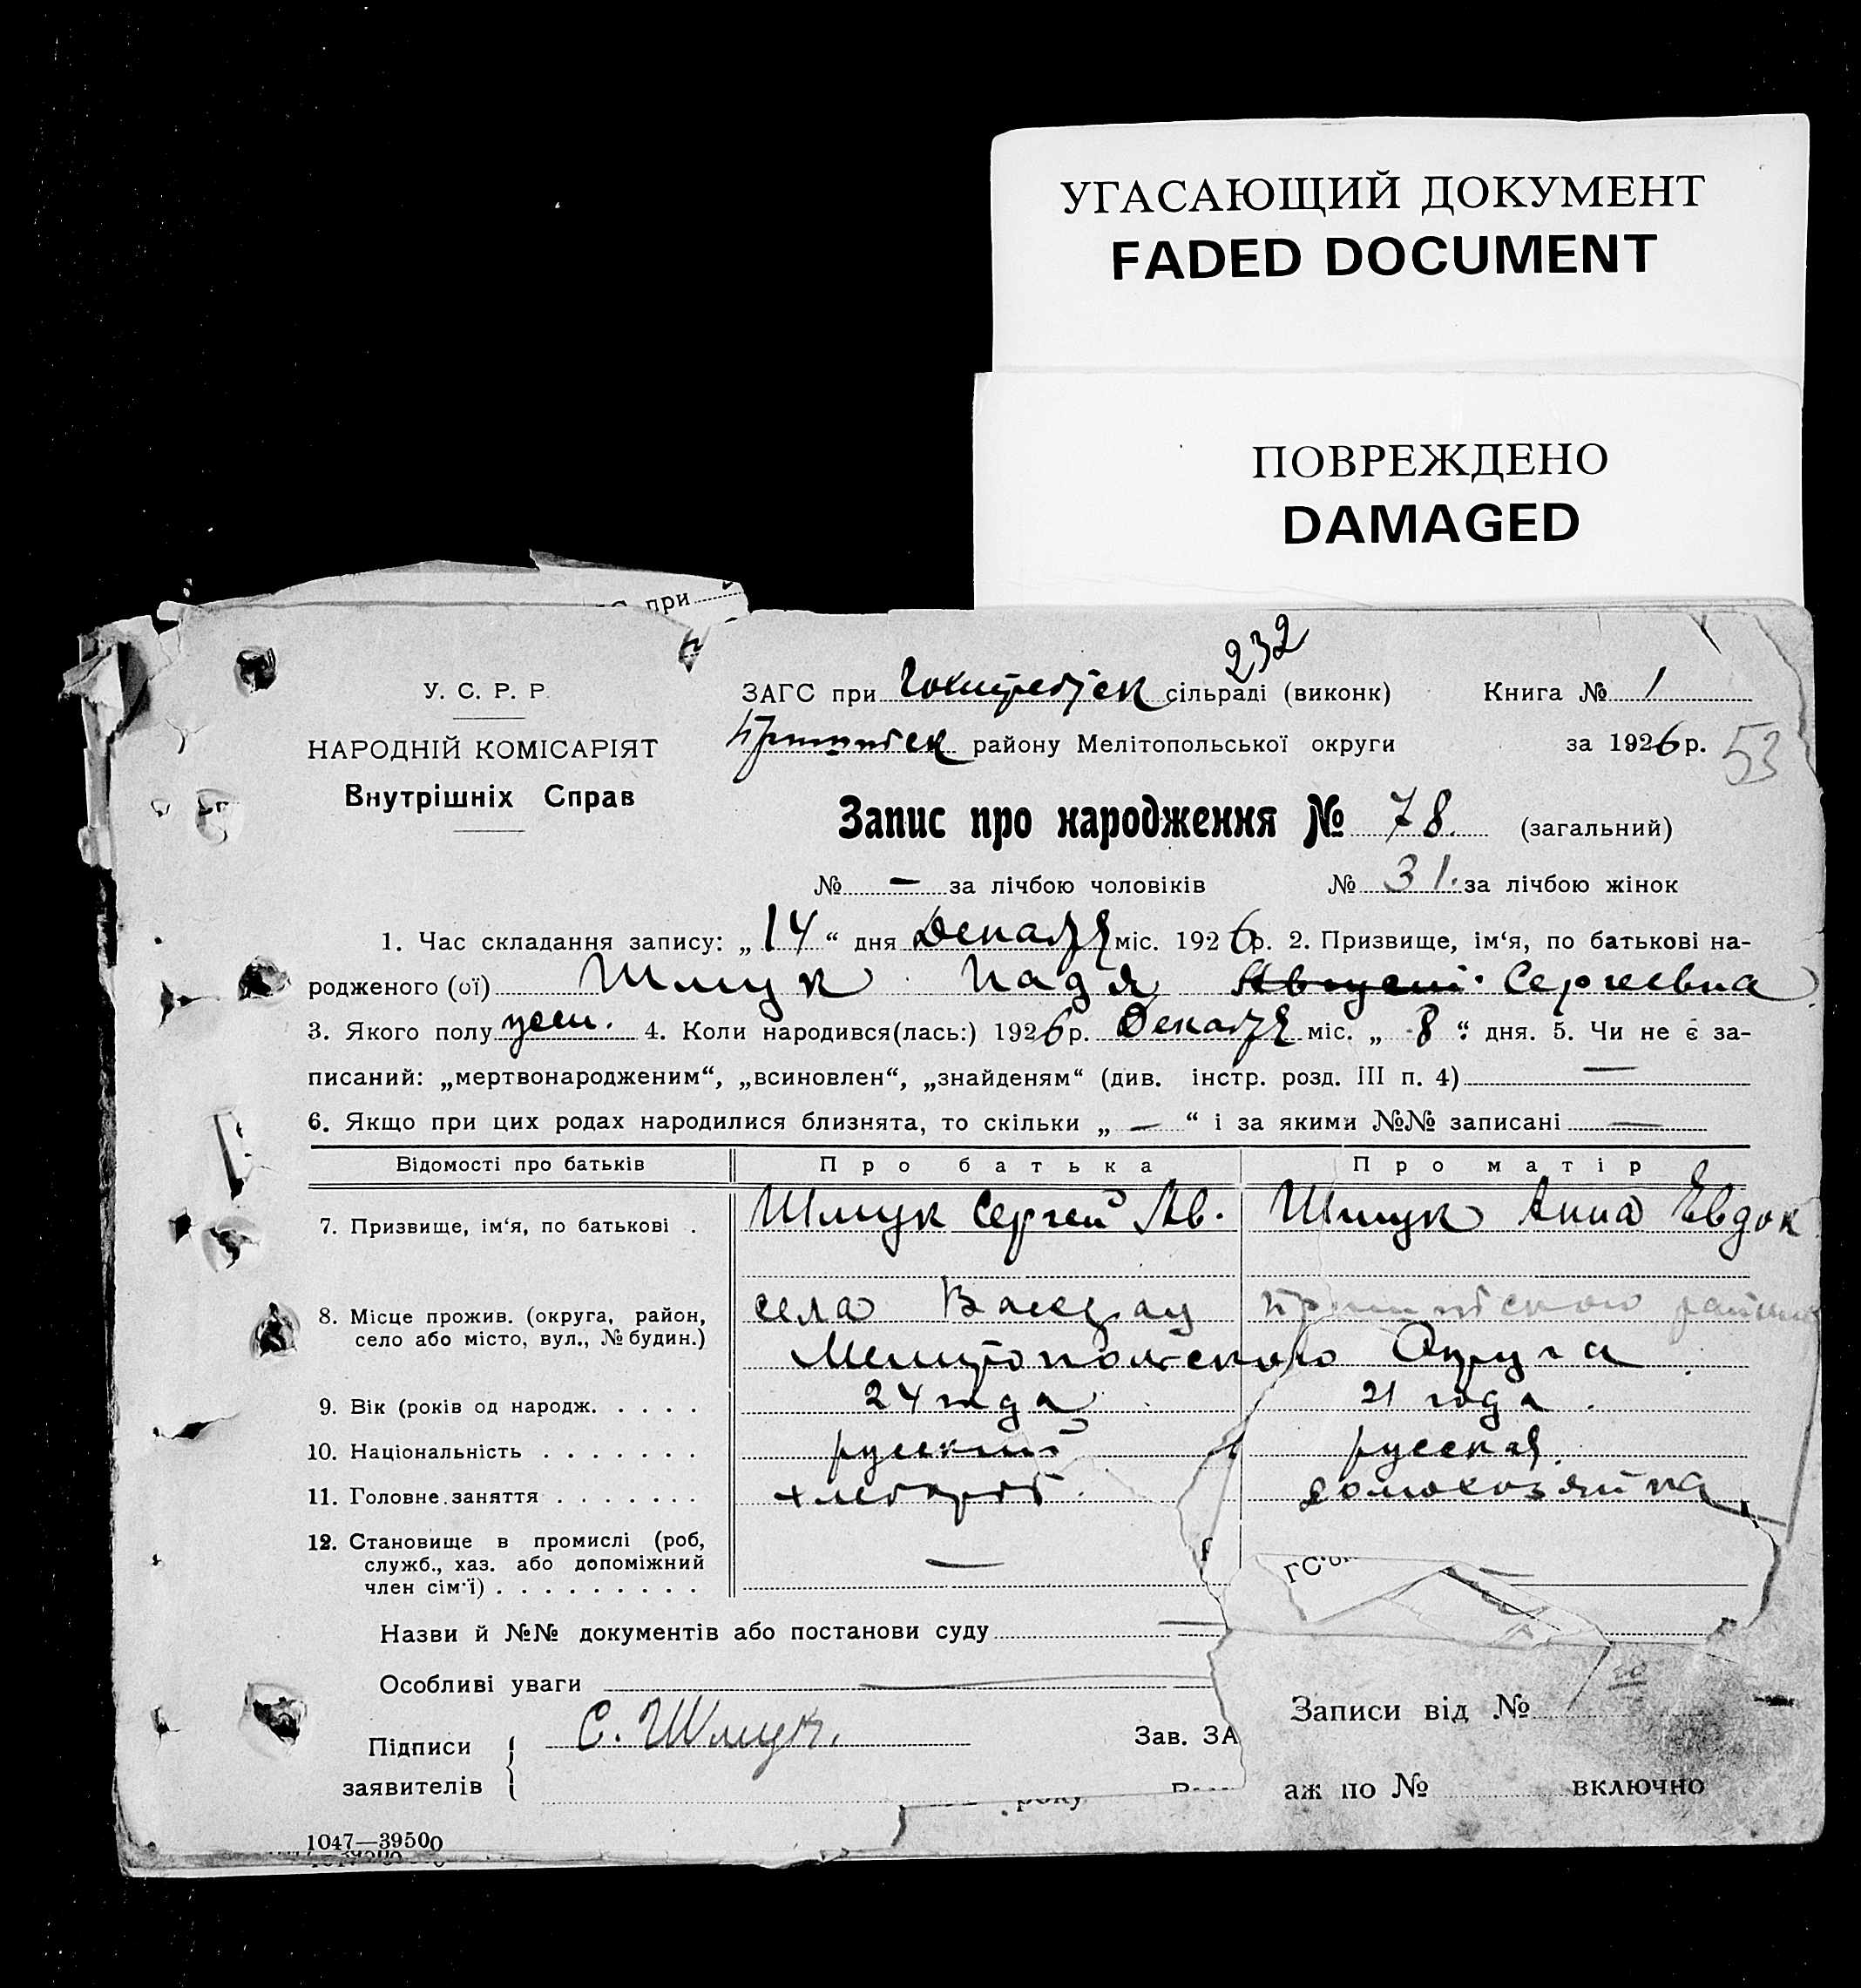 УГАСАЮЩИЙ ДОКУМЕНТ
FADED DOCUMENT
ПОВРЕЖДЕНО
DAMAGED
при
232
У. С. Р. Р.
ЗАГС при сільраді (виконк) Книга № 1
НАРОДНІЙ КОМІСАРІЯТ
району Мелітопольської округи за 1926 р. 53
Внутрішніх Справ
Запис про народження № 78. (загальний)
№ — за лічбою чоловіків № 31. за лічбою жінок
1. Час складання запису: „14“ дня Декабря міс. 1926 р. 2. Призвище, ім‘я, по батькові на-
родженого (ої) Шмук Надя Август. Сергеевна
3. Якого полу жен. 4. Коли народився(лась:) 1926 р. Декабря міс. „ 8 “ дня. 5. Чи не є за-
писаний: „мертвонародженим“, „всиновлен“, „знайденям“ (див. інстр. розд. III п. 4) —
6. Якщо при цих родах народилися близнята, то скільки „ — “ і за якими №№ записані —
Відомості про батьків Про батька Про матір
7. Призвище, ім‘я, по батькові . Шмук Сергей Ав. Шмук Анна Евдок
8. Місце прожив. (округа, район, село або місто, вул., № будин.) села района
Мелитопольского Округа
9. Вік (років од народж. . . . . 24 года 21 года .
10. Національність . . . . . . . русский русская
11. Головне заняття . . . . . . . хлебороб. домохозяйка
12. Становище в промислі (роб,
служб., хаз. або допоміжний —
член сім‘ї) . . . . . . . . .
Назви й №№ документів або постанови суду —
Особливі уваги —
Записи від №
Підписи С. Шмук. Зав. ЗА
заявителів
аж по № включно
року
1047—39500